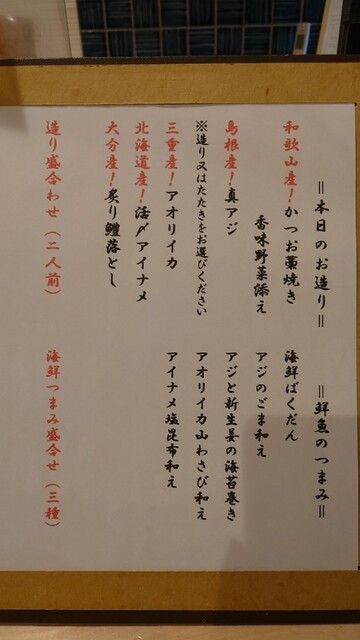 ＝本日のお造り＝
和歌山産！かつお藁焼き
香味野菜添え
島根産！真アジ
※造り又はたたきをお選びください
三重産！アオリイカ
北海道産！活〆アイナメ
大分産！炙り鱧落とし
造り盛合わせ（二人前）
＝鮮魚のつまみ＝
海鮮ばくだん
アジのごま和え
アジと新生姜の海苔巻き
アオリイカ山わさび和え
アイナメ塩昆布和え
海鮮つまみ盛合せ（三種）